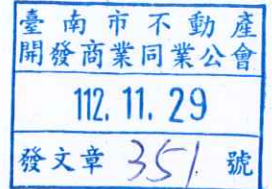 臺南市不動產
開發商業同業公會
112.11.29
發文章 351 號